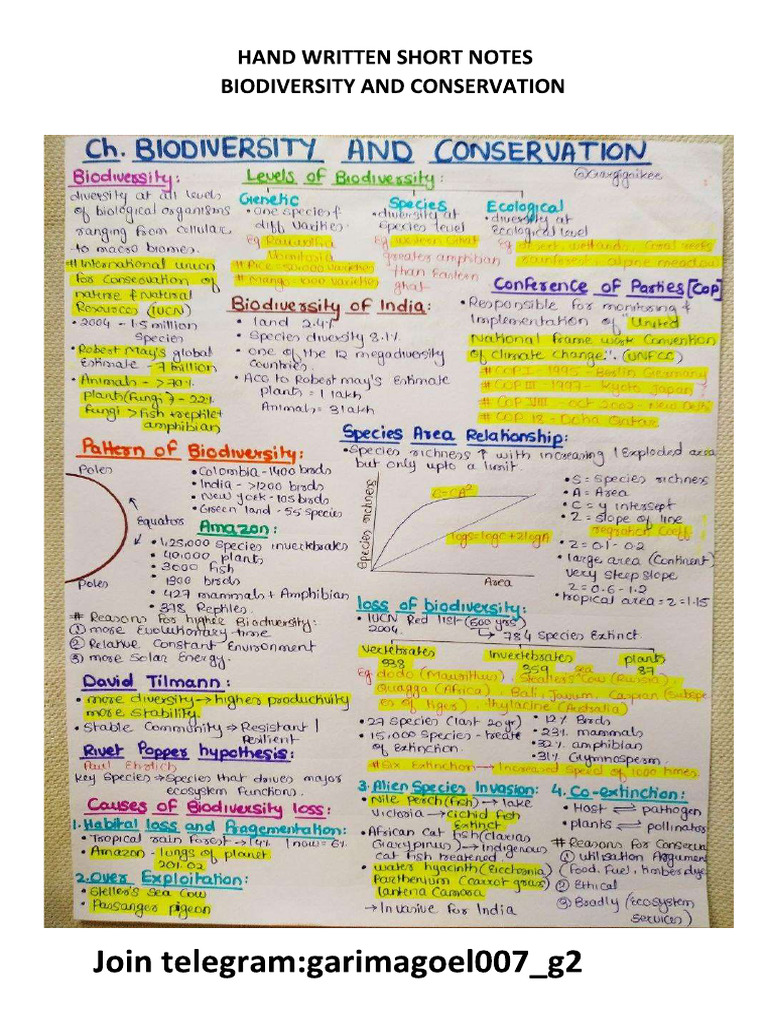 HAND WRITTEN SHORT NOTES
BIODIVERSITY AND CONSERVATION
Ch. BIODIVERSITY AND CONSERVATION
Biodiversity:
diversity at all levels
of biological organisms
ranging from cellular
to macro biomes.
# International union
for conservation of
nature & Natural
Resources (IUCN)
• 2004 - 1.5 million
Species
• Robert May's global
Estimate - 7 billion
• Animals - >70%
plants(fungi) - 22%
fungi > fish + reptile +
amphibian
Levels of Biodiversity:
Genetic
• one species &
diff varities.
Eg Rauwolfia
Vomitoria
# Rice - 50,000 varieties
# mango - 1000 varieties
Species
• diversity at
species level
Eg western Ghat
greater amphibian
than Eastern
ghat
Ecological
• diversity at
Ecological level
Eg desert, wetlands, coral reefs
rainforest, alpine meadow
Biodiversity of India:
• land 2.4%
• Species diversity 8.1%
• one of the 12 megadiversity
countries.
• Acc to Robert may's Estimate
plants = 1 lakh
Animals = 3 lakh
Conference of Parties [COP]
• Responsible for monitoring &
Implementation of "United
National frame work Convention
of climate change". (UNFCC)
# COP I - 1995 - Berlin Germany
# COP III - 1997 - Kyoto Japan
# COP VIII - oct 2002 - New Delhi
# COP 18 - Doha Qatar
Pattern of Biodiversity:
Poles
Equators
Poles
• Colombia - 1400 birds
• India - >1200 birds
• New york - 105 birds
• Green land - 55 species
Amazon:
• 1,25,000 species invertebrates
• 40,000 plants
• 3000 fish
• 1300 birds
• 427 mammals + Amphibian
• 378 Reptiles.
# Reasons for higher Biodiversity:
① more Evolutionary time
② Relative Constant Environment
③ more Solar Energy.
Species Area Relationship:
• Species richness ↑ with increasing Exploded area
but only upto a limit.
Species richness
logs = logC + zlogA
Area
• S = Species richness
• A = Area
• C = y intersept
• Z = slope of line
regration Coeff
• Z = 0.1 - 0.2
• large area (Continent)
very steep slope
Z = 0.6 - 1.2
• tropical area = Z = 1.15
David Tilmann:
• more diversity → higher productivity
more stability.
• Stable Community ⇒ Resistant /
Resilient
Rivet Popper hypothesis:
Paul Ehrlich
Key Species ⇒ Species that drives major
ecosystem functions.
loss of biodiversity:
• IUCN Red list (500 yrs)
2004.
→ 784 species Extinct.
vertebrates
338
invertebrates
359
plants
87
Eg dodo (Mauritius), Steallers Sea Cow (Russia),
Quagga (Africa), Bali, Javum, Caspian (subspe
es of tiger), thylacine (Australia)
• 27 species (last 20 yr)
• 15,000 species - treate
of Extinction.
• 12% Birds
• 23% mammals
• 32% amphibian
• 31% Gymnosperm
# Six Extinction → Increased speed of 1000 times
Causes of Biodiversity loss:
1. Habital loss and Fragementation:
• Tropical rain forest → 14% | now = 6%
• Amazon - lungs of planet
2. Over Exploitation:
• Steller's Sea Cow
• Passanger pigeon
3. Alien Species Invasion:
• Nile perch (fish) → lake
Victoria → cichid fish
Extinct
• African Cat fish (clarias
Gariypinus) → Indigenous
cat fish treatened.
• water hyacinth (Eicchornia)
Parthenium (carrot grass)
lantena Camara
→ Invasive for India
4. Co-extinction:
• Host ⇌ pathogen
• plants ⇌ pollinator
# Reasons for Conserva
① utilisation Argument
(Food, Fuel, timber dye
② Ethical
③ Bradly (Ecosystem
Services)
Join telegram:garimagoel007_g2